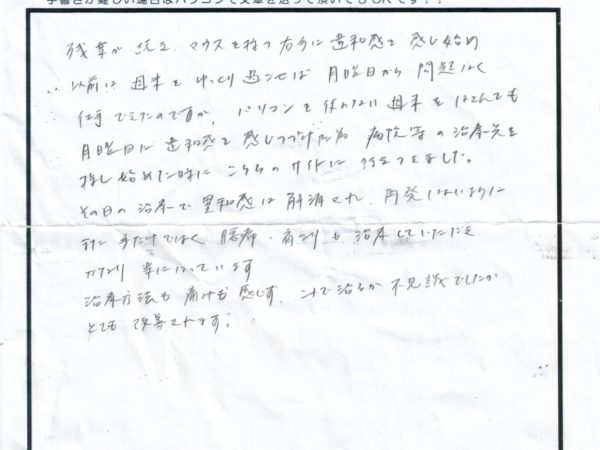 手書きが難しい場合はパソコンで文章を送って頂いてもOKです！！
残業が続き、マウスを持つ右手に違和感を感じ始め
以前は週末をゆっくり過ごせば月曜日から問題なく
仕事できたのですが、パソコンを使わない週末をはさんでも
月曜日に違和感を感じつづけたため病院等の治療先を
探し始めた時にこちらのサイトに行きつきました。
その日の治療で違和感は解消され、再発しないように
また手だけではなく腰痛・肩こりも治療していただき
かなり楽になっています
治療方法も痛みも感じず、これで治るか不思議でしたが
とても改善されます。